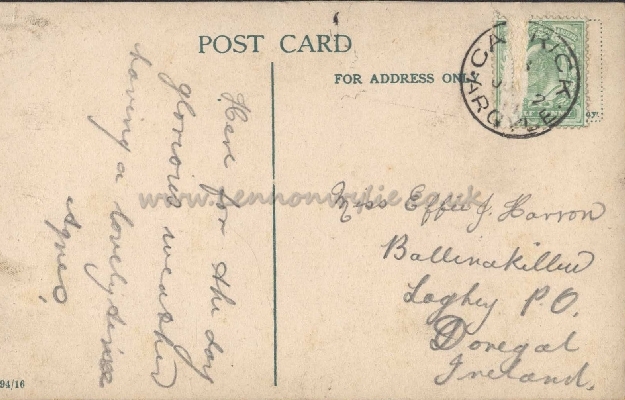 POST CARD
FOR ADDRESS ONLY
CARRICK
ARGYLE
Here for the day
glorious weather
having a lovely time
Agnes.
Miss Effie J. Harron
Ballinakillew
Laghey P.O.
Donegal
Ireland.
www.lennonwylie.co.uk
94/16